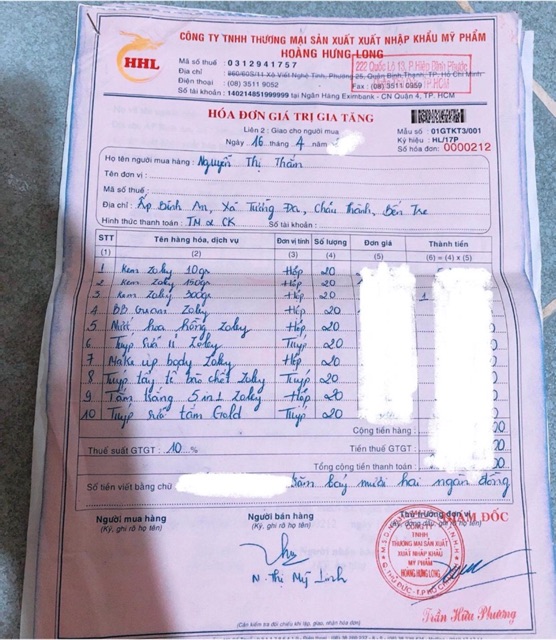 HHL
CÔNG TY TNHH THƯƠNG MẠI SẢN XUẤT XUẤT NHẬP KHẨU MỸ PHẨM
HOÀNG HƯNG LONG
Mã số thuế : 0312941757
222 Quốc Lộ 13, P.Hiệp Bình Phước
Địa chỉ : 860/60S/11 Xô Viết Nghệ Tĩnh, Phường 25, Quận Bình Thạnh, TP. Hồ Chí Minh
Điện thoại : (08) 3511 9052 Fax : (08) 3511 0959
Số tài khoản : 140214851999999 tại Ngân Hàng Eximbank - CN Quận 4, TP. HCM
HÓA ĐƠN GIÁ TRỊ GIA TĂNG
Liên 2 : Giao cho người mua
Ngày 16 tháng 4
Mẫu số : 01GTKT3/001
Ký hiệu : HL/17P
Số hóa đơn: 0000212
Họ tên người mua hàng : Nguyễn Thị Thắm
Tên đơn vị :
Mã số thuế :
Địa chỉ : Ấp Bình An, Xã Tường Đa, Châu Thành, Bến Tre
Hình thức thanh toán : TM & CK Số tài khoản :
STT Tên hàng hóa, dịch vụ Đơn vị tính Số lượng Đơn giá Thành tiền
(1) (2) (3) (4) (5) (6) = (4) x (5)
1 Kem Zoley 10gr Hộp 20
2 Kem Zoley 150gr Hộp 20
3 Kem Zoley 300gr Hộp 20
4 BB Zoley Hộp 20
5 Mười hoa hồng Zoley Hộp 20
6 Tuýp Zoley Tuýp 20
7 Make up body Zoley Hộp 20
8 Tuýp tẩy tế bào chết Zoley Tuýp 20
9 Tắm trắng 5 in 1 Zoley Hộp 20
10 Tuýp sữa tắm Gold Tuýp 20
Cộng tiền hàng :
Thuế suất GTGT : 10 % Tiền thuế GTGT :
Tổng cộng tiền thanh toán :
Số tiền viết bằng chữ trăm bảy mươi hai ngàn đồng
Người mua hàng
(Ký, ghi rõ họ tên)
Người bán hàng
(Ký, ghi rõ họ tên)
Thủ trưởng đơn vị
GIÁM ĐỐC
CÔNG TY
TNHH
THƯƠNG MẠI SẢN XUẤT
XUẤT NHẬP KHẨU
MỸ PHẨM
HOÀNG HƯNG LONG
N. Thị Mỹ Linh
Trần Hữu Phương
(Cần kiểm tra đối chiếu khi lập, giao, nhận hóa đơn)